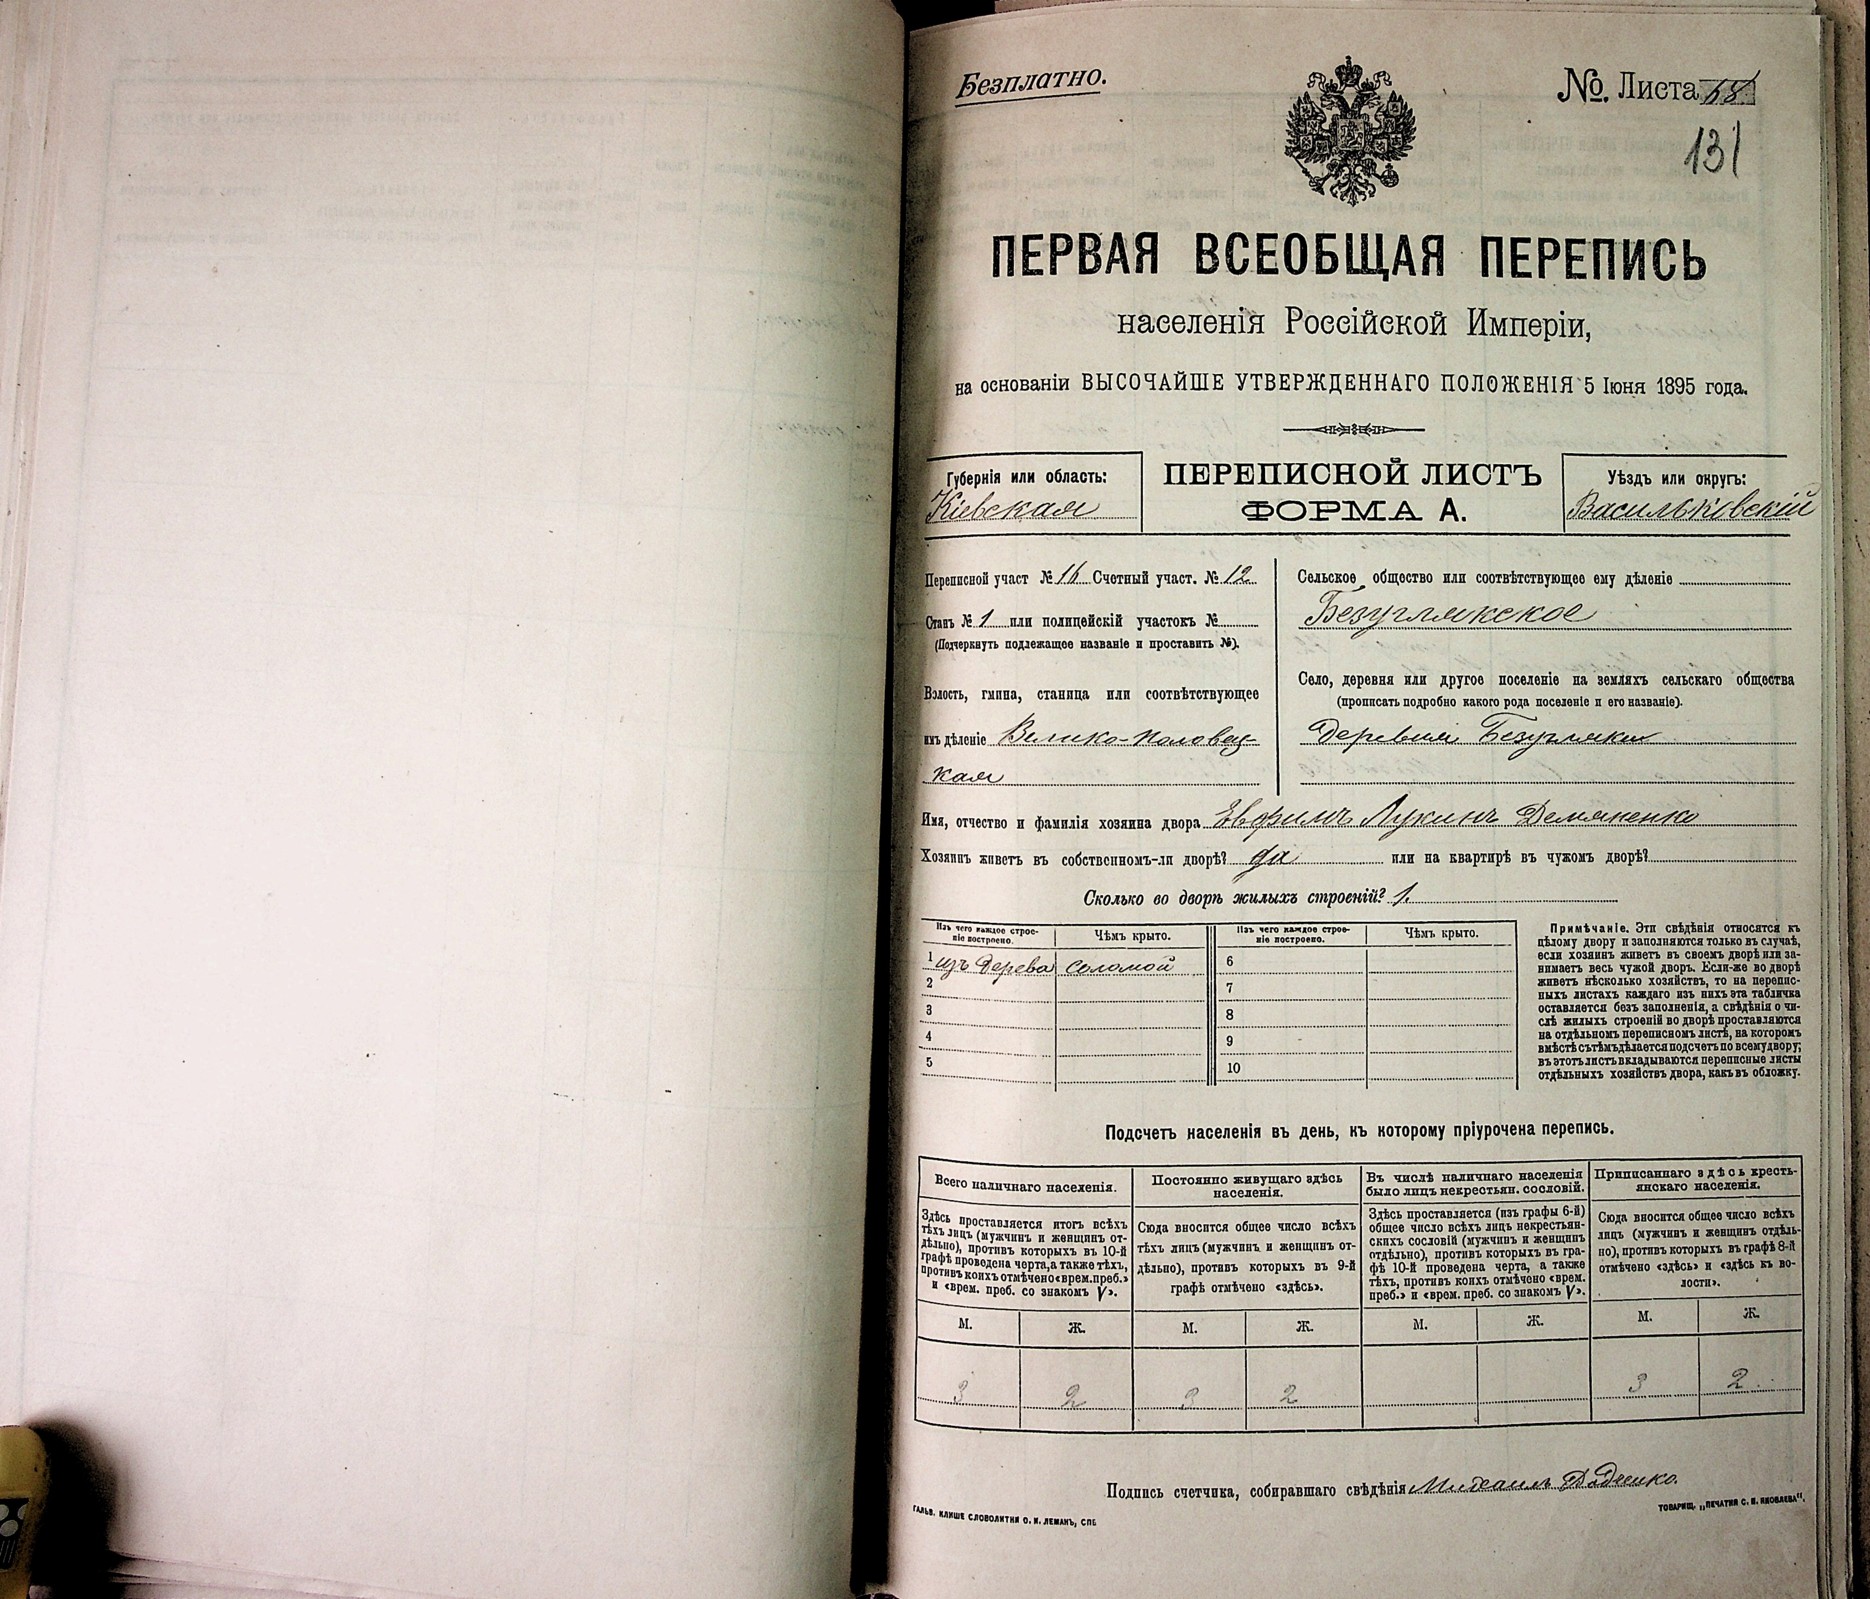 Безплатно.
№. Листа 68
131
ПЕРВАЯ ВСЕОБЩАЯ ПЕРЕПИСЬ
населенія Россійской Имперіи,
на основаніи ВЫСОЧАЙШЕ УТВЕРЖДЕННАГО ПОЛОЖЕНІЯ 5 Іюня 1895 года.
Губернія или область:
Кіевская
ПЕРЕПИСНОЙ ЛИСТЪ
ФОРМА А.
Уѣздъ или округъ:
Васильковскій
Переписной участ № 16 Счетный участ. № 12
Станъ № 1 или полицейскій участокъ №
(Подчеркнуть подлежащее названіе и проставить №).
Волость, гмина, станица или соотвѣтствующее
имъ дѣленіе Велико-Половец-
кая
Сельское общество или соотвѣтствующее ему дѣленіе
Безуглякское
Село, деревня или другое поселеніе на земляхъ сельскаго общества
(прописать подробно какого рода поселеніе и его названіе).
Деревня Безугляки
Имя, отчество и фамилія хозяина двора Евфимъ Лукинъ Демяненко
Хозяинъ живетъ въ собственномъ-ли дворѣ? да или на квартирѣ въ чужомъ дворѣ?
Сколько во дворѣ жилыхъ строеній? 1.
Изъ чего каждое строе-
ніе построено.
Чѣмъ крыто.
Изъ чего каждое строе-
ніе построено.
Чѣмъ крыто.
1 изъ дерева соломой 6
2 7
3 8
4 9
5 10
Примѣчаніе. Эти свѣдѣнія относятся къ
цѣлому двору и заполняются только въ случаѣ,
если хозяинъ живетъ въ своемъ дворѣ или за-
нимаетъ весь чужой дворъ. Если-же во дворѣ
живетъ нѣсколько хозяйствъ, то на перепис-
ныхъ листахъ каждаго изъ нихъ эта табличка
оставляется безъ заполненія, а свѣдѣнія о чи-
слѣ жилыхъ строеній во дворѣ проставляются
на отдѣльномъ переписномъ листѣ, на которомъ
вмѣстѣ съ тѣмъ дѣлается подсчетъ по всему двору;
въ этотъ листъ вкладываются переписные листы
отдѣльныхъ хозяйствъ двора, какъ въ обложку.
Подсчетъ населенія въ день, къ которому пріурочена перепись.
Всего наличнаго населенія.
Здѣсь проставляется итогъ всѣхъ
тѣхъ лицъ (мужчинъ и женщинъ от-
дѣльно), противъ которыхъ въ 10-й
графѣ проведена черта, а также тѣхъ,
противъ коихъ отмѣчено «врем. преб.»
и «врем. преб. со знакомъ V».
Постоянно живущаго здѣсь
населенія.
Сюда вносится общее число всѣхъ
тѣхъ лицъ (мужчинъ и женщинъ от-
дѣльно), противъ которыхъ въ 9-й
графѣ отмѣчено «здѣсь».
Въ числѣ наличнаго населенія
было лицъ некрестьян. сословій.
Здѣсь проставляется (изъ графы 6-й)
общее число всѣхъ лицъ некрестьян-
скихъ сословій (мужчинъ и женщинъ
отдѣльно), противъ которыхъ въ гра-
фѣ 10-й проведена черта, а также
тѣхъ, противъ коихъ отмѣчено «врем.
преб.» и «врем. преб. со знакомъ V».
Приписаннаго здѣсь кресть-
янскаго населенія.
Сюда вносится общее число всѣхъ
лицъ (мужчинъ и женщинъ отдѣль-
но), противъ которыхъ въ графѣ 8-й
отмѣчено «здѣсь» и «здѣсь къ во-
лости».
М. Ж. М. Ж. М. Ж. М. Ж.
3 2 3 2 3 2
Подпись счетчика, собиравшаго свѣдѣнія Михаилъ
ГАЛЬВ. КЛИШЕ СЛОВОЛИТНИ О. И. ЛЕМАНЪ, СПБ
ТОВАРИЩ. „ПЕЧАТНЯ С. П. ЯКОВЛЕВА“.